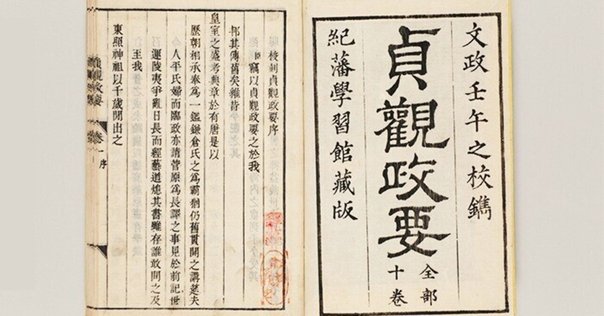 文政壬午之校鐫
貞觀政要
全部
十卷
紀藩學習館藏版
校刻貞觀政要序
臣竊以貞觀政要之於我
邦其傳舊矣維昔
皇室之盛考典章於有唐是以
歷朝相承奉為一鑑鎌倉氏之為霸猶仍舊貫開之講筵夫
人平氏婦而臨政亦請菅原為長譯之事見於前記世
運陵夷爭戰日長而經藝道熄其書雖存誰敢問之及
至我
東照神祖以千歲間出之
貞觀政要 卷一 序